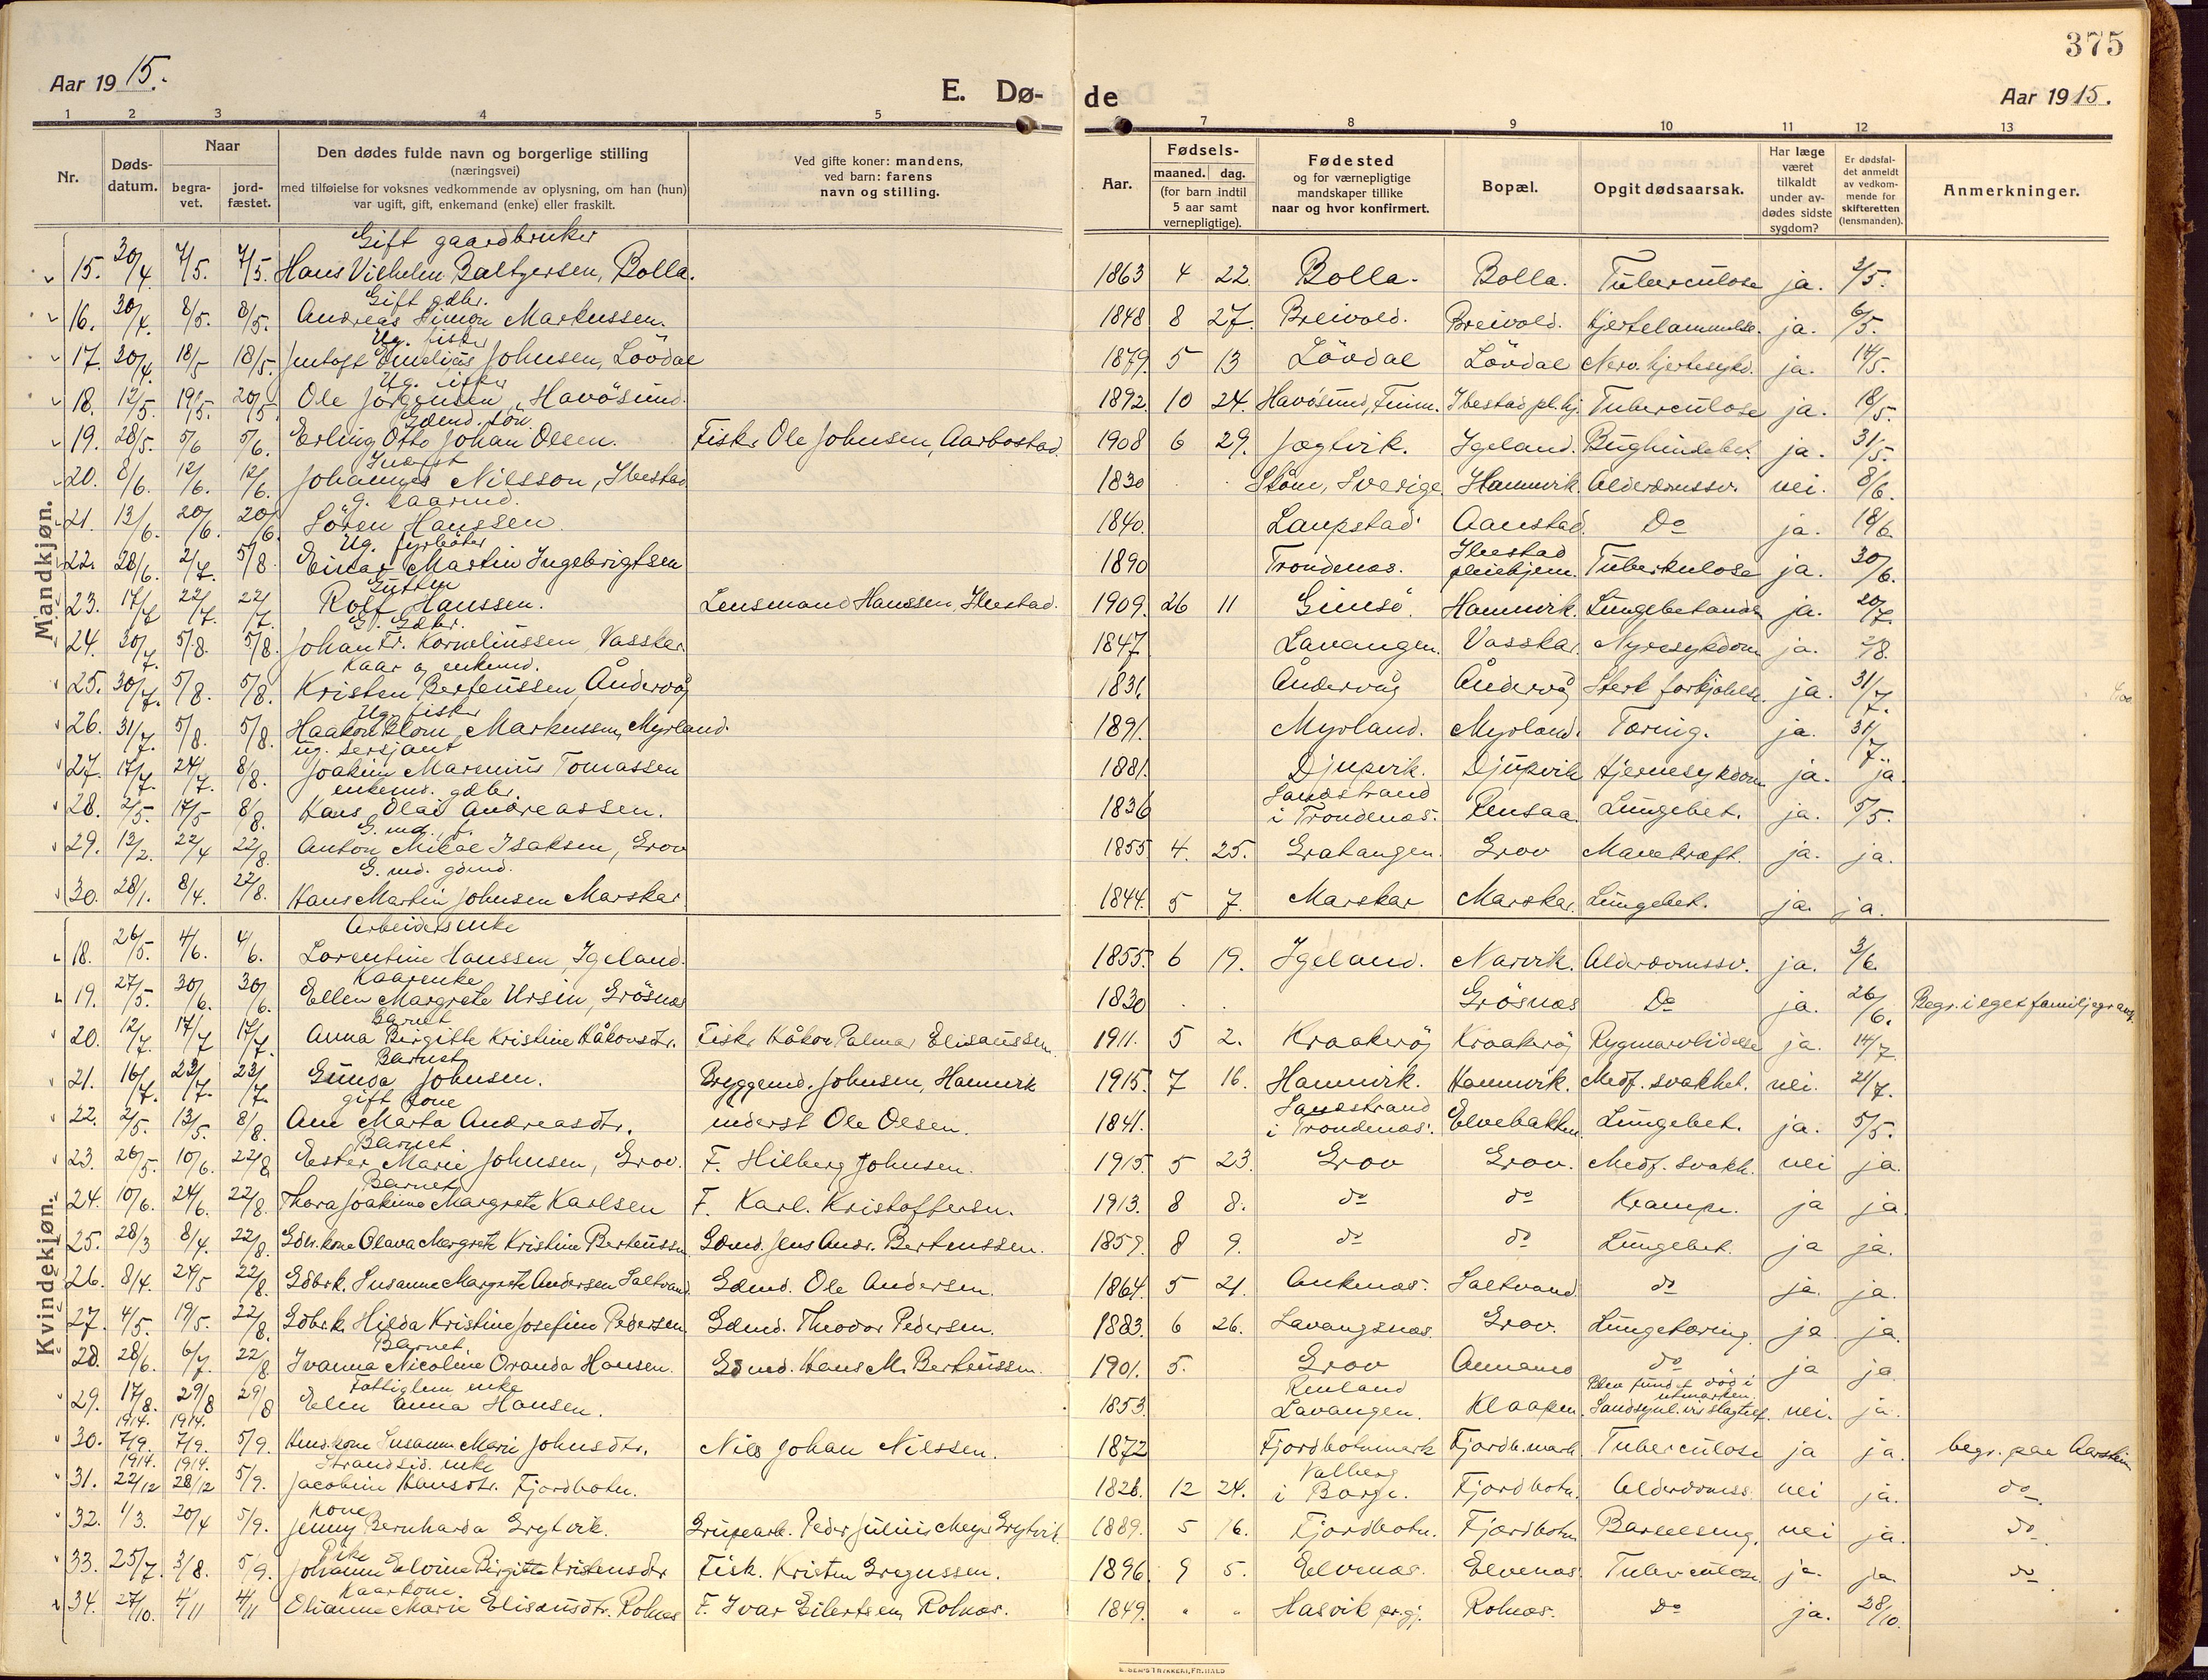 375
Aar 1915. E. Dø- de Aar 1915.
1 2 3 4 5 7 8 9 10 11 12 13
Nr. Døds-datum. Naar begra-vet. jord-fæstet. Den dødes fulde navn og borgerlige stilling (næringsvei) med tilføielse for voksnes vedkommende av oplysning, om han (hun) var ugift, gift, enkemand (enke) eller fraskilt. Ved gifte koner: mandens, ved barn: farens navn og stilling. Aar. Fødsels- maaned. dag. (for barn indtil 5 aar samt vernepligtige). Fødested og for værnepligtige mandskaper tillike naar og hvor konfirmert. Bopæl. Opgit dødsaarsak. Har læge været tilkaldt under av-dødes sidste sygdom? Er dødsfal-det anmeldt av vedkom-mende for skifteretten (lensmanden). Anmerkninger.
Mandkjøn.
Gift gaardbruker
15. 30/4. 7/5. 7/5. Hans Vilhelm Baltzersen, Bolla. 1863 4 22. Bolla. Bolla. Tuberculose ja. 3/5.
Gift gdbr.
16. 30/4. 8/5. 8/5. Andreas Simon Markussen. 1848 8 27. Breivold. Breivold. Hjertelammelse. ja. 6/5.
Ug. fisker
17. 30/4. 18/5 18/5. Jentoft Emelius Johnsen, Lövdal 1879. 5 13 Lövdal Lövdal Nerv. hjertesykd. ja. 14/5.
Ug. fisker
18. 12/5. 19/5. 20/5 Ole Jørgensen, Havösund. 1892. 10 24. Havösund, Finm. Ibestad pl.hj. Tuberculose ja. 18/5.
Gdmd. søn.
19. 28/5. 5/6 5/6. Erling Otto Johan Olsen. Fisker Ole Johnsen, Aarbostad. 1908 6 29. Jægtvik. Igeland. Bughindebet. ja. 31/5.
Inderst
20. 8/6. 12/6. 12/6. Johannes Nilsson, Ibestad 1830 Ström, Sverige Hamnvik. Alderdomssv. nei. 8/6.
g. kaarmd.
21. 13/6. 20/6. 20/6. Sören Hanssen. 1840. Laupstad Aanstad. Do ja. 18/6.
Ug. fyrböter
22. 28/6. 2/7. 5/8. Einar Martin Ingebrigtsen 1890 Trondenæs. Ibestad pleiehjem. Tuberkulose ja. 30/6.
Gutten
23. 17/7 22/7. 22/7. Rolf Hanssen. Lensmand Hanssen, Ibestad. 1909. 26 11 Gimsö. Hamnvik. Lungebetændelse ja. 20/7.
G. Gdbr.
24. 30/7. 5/8. 5/8. Johan Fr. Korneliussen, Vasskar. 1847 Lavangen. Vasskar. Nyresykdom ja. 2/8.
Kaar og enkemd.
25. 30/7. 5/8. 5/8. Kristen Berteussen, Åndervåg 1831. Åndervåg Åndervåg Sterk forkjölelse. ja. 31/7.
Ug. fisker
26. 31/7. 5/8. 5/8. Haakon Blom Markussen, Myrland. 1891. Myrland. Myrland. Tæring. ja. 31/7.
ug. sersjant
27. 17/7. 24/7. 8/8. Joakim Marenius Tomassen 1881. Djupvik. Djupvik Hjernesykdom ja. ja
enkemd. gdbr.
28. 2/5. 17/5 8/8. Hans Olai Andreassen. 1836 Sandstrand i Trondenæs. Rensaa. Lungebet. ja. 5/5.
G. md. f.
29. 13/2. 22/4 22/8. Anton Mikal Isaksen, Grov 1855 4. 25. Gratangen. Grov Mavekræft. ja. ja.
G. md. gdmd.
30. 28/1. 8/4. 22/8. Hans Martin Johnsen Marskar 1844. 5 7. Marskar Marskar. Lungebet. ja. ja.
Kvindekjøn.
Arbeiders enke
18. 26/5. 4/6. 4/6. Lorentine Hanssen, Igeland. 1855. 6 19. Igeland. Narvik. Alderdomssv. ja. 3/6.
Kaarenke
19. 27/5. 30/6. 30/6. Ellen Margrete Ursin, Grösnæs 1830 Grösnæs Do ja. 26/6. Begr. i eget familjegrav.
Barnet
20. 12/7. 17/7 17/7. Anna Birgitte Kristine Håkonsdtr. Fisker Håkon Palmar Eliseussen. 1911. 5 2. Kraakerøy Kraakerøy Rygmarvlidelse ja. 14/7.
Barnet
21. 16/7. 23/7. 23/7. Gunda Johnsen. Bryggemd. Johnsen, Hamnvik 1915. 7 16. Hamnvik. Hamnvik. Medf. svakhet. nei. 21/7.
gift kone
22. 2/5. 13/5. 8/8. Ane Marta Andreasdtr. inderst Ole Olsen. 1841. Sandstrand i Trondenæs. Elvebakken. Lungebet. ja. 5/5.
Barnet
23. 26/5. 10/6. 22/8 Ester Marie Johnsen, Grov. F. Hilberg Johnsen. 1915. 5 23. Grov Grov. Medf. svakh. nei ja.
Barnet
24. 10/6. 24/6. 22/8. Thora Joakime Margrete Karlsen F. Karl. Kristoffersen. 1913. 8 8. do do Krampe. ja ja.
25. 28/3 8/4. 22/8. Gdbr.kone Olava Margrete Kristine Berteussen Gdmd. Jens Andr. Berteussen. 1859. 8 9. do do Lungebet. ja ja.
26. 8/4. 24/5 22/8. Gdbr.k. Susanne Margrete Andersen Saltvand. Gdmd. Ole Andersen. 1864. 5 21. Ankenæs. Saltvand. do ja. ja.
27. 4/5. 19/5. 22/8. Gdbr.k. Hilda Kristine Josefine Pedersen. Gdmd. Theodor Pedersen. 1883. 6 26. Lavangsnæs. Grov. Lungetæring. ja ja.
Barnet
28. 28/6. 6/7. 22/8. Ivanna Nicoline Oranda Hansen. Gdmd. Hans M. Berteussen. 1901. 5. Grov Annamo do ja ja.
Fattiglem enke
29. 17/8. 29/8 29/8 Elen Anna Hansen. 1853. Renland Lavangen. Klaapen. Blev fundet död i utmarken. Sandsynl.vis slagtilf. nei. ja.
1914. 1914.
30. 7/9. 7/9. 5/9. Hmd.kone Susanne Marie Johnsdtr. Nils Johan Nilssen. 1872 Fjordbotnmark Fjordb.mark Tuberculose ja ja. begr. paa Aarstein
1914. 1914. Strandsid. enke
31. 22/12 28/12 5/9. Jacobine Hansdtr. Fjordbotn. 1828. 12 24. Valberg i Borge. Fjordbotn. Alderdomss. nei ja. do.
Kone
32. 1/3. 20/4 5/9. Jenny Bernharda Grytvik. Grupearb. Peder Julius Meyer Grytvik 1889. 5 16. Fjordbotn. Fjordbotn Barselseng. nei ja. do.
Pike
33. 25/7. 3/8. 5/9. Johanne Elvine Birgitte Kristensdtr Fisk. Kristen Gregussen. 1896. 9 5. Elvenæs. Elvenæs. Tuberculose. ja. ja do
Kaarkone
34. 27/10. 4/11 4/11 Elianne Marie Eliseusdtr. Rolnæs F. Ivar Eilertsen, Rolnæs. 1849. " " Hasvik pr.gj. Rolnæs. Do ja. 28/10.
E. SEM'S TRYKKERI, FR.HALD